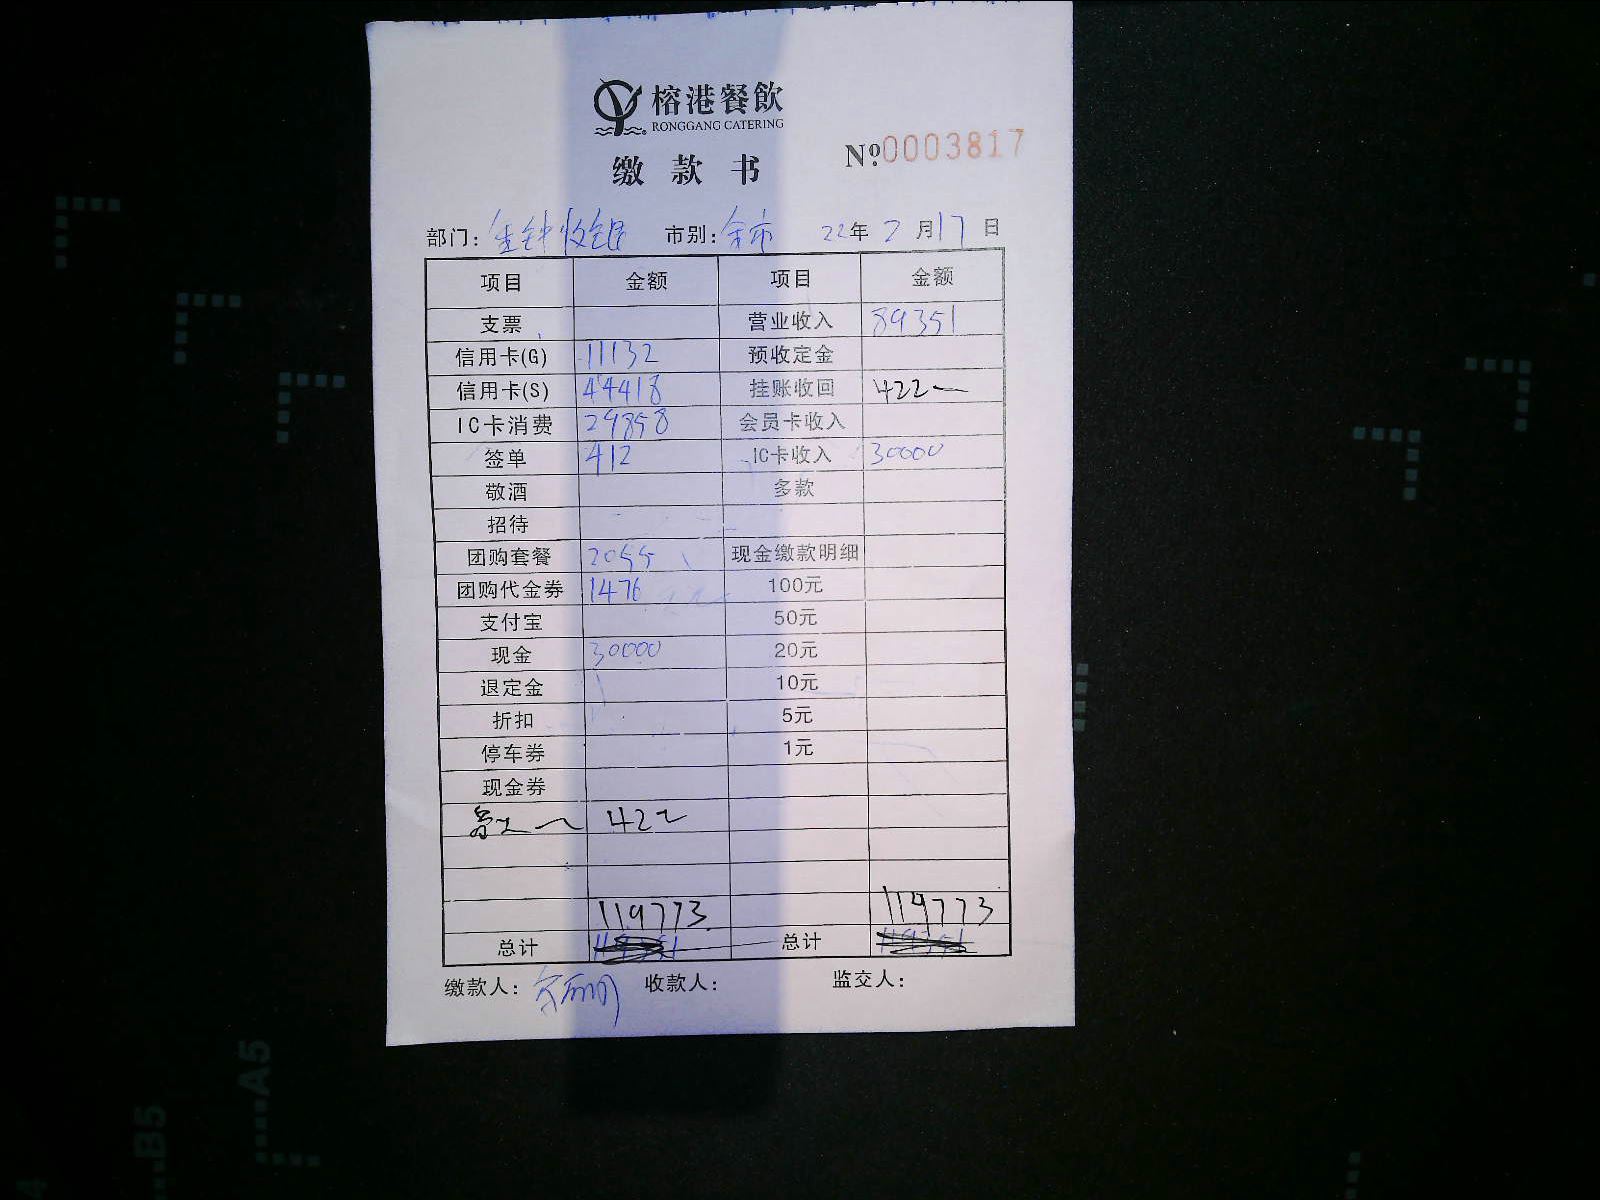 榕港餐飲
RONGGANG CATERING
缴款书
№0003817
部门：金钟收银 市别：全市 22年2月17日
项目 金额 项目 金额
支票 营业收入 89351
信用卡(G) 11132 预收定金
信用卡(S) 44418 挂账收回 422
IC卡消费 29858 会员卡收入
签单 412 IC卡收入 30000
敬酒 多款
招待
团购套餐 2055 现金缴款明细
团购代金券 1476 100元
支付宝 50元
现金 30000 20元
退定金 10元
折扣 5元
停车券 1元
现金券
422
119773 119773
总计 总计
缴款人： 收款人： 监交人：
A5
B5
4